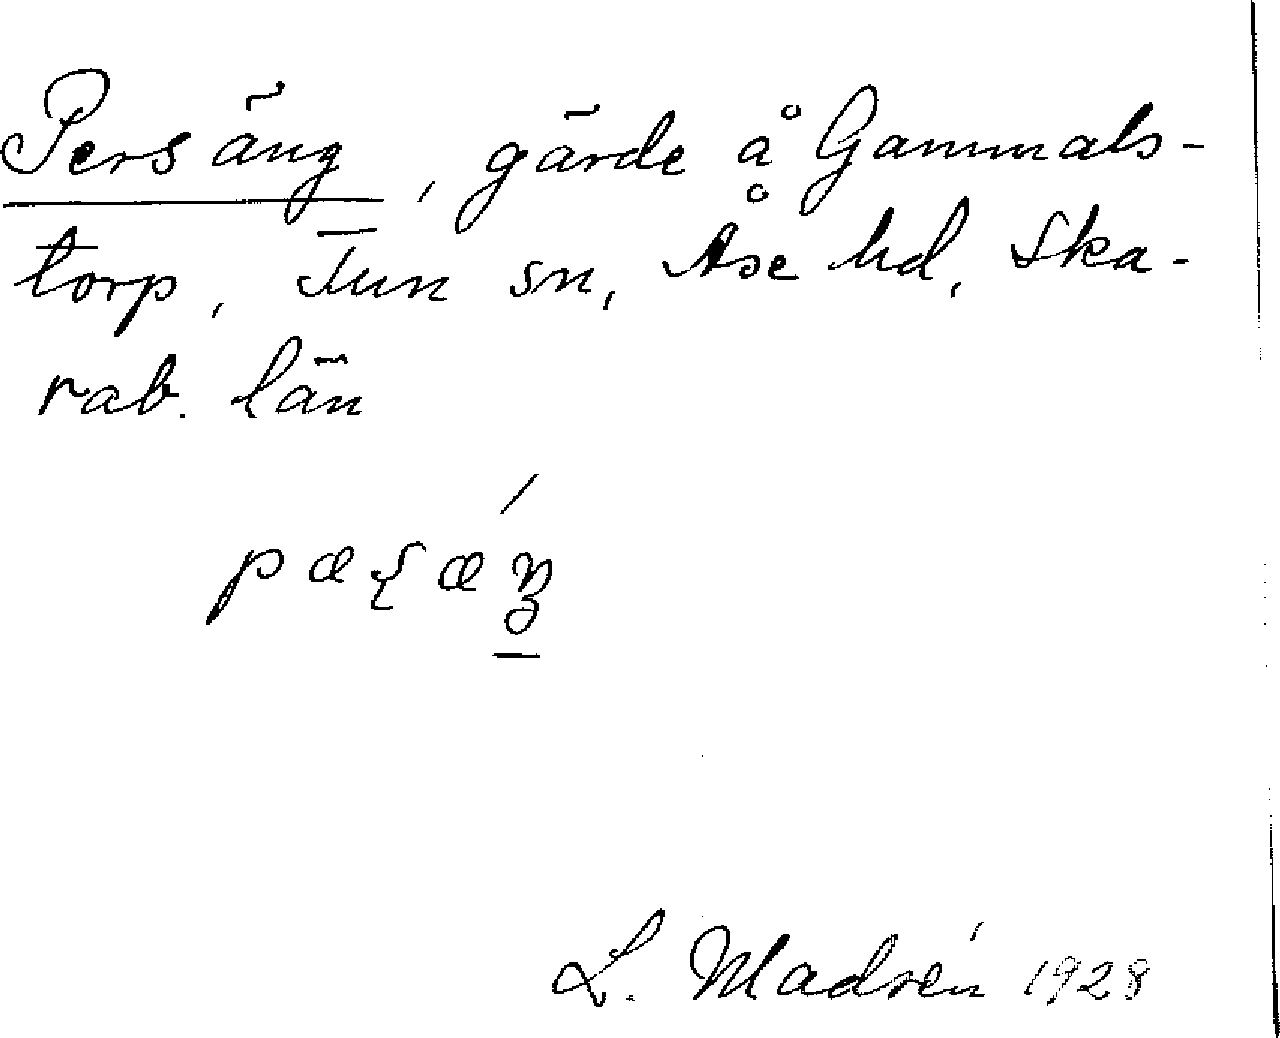 Persäng, gärde å Gammals-
torp, Tun sn, Åse hd, Ska-
rab. län
L. Madsén 1928